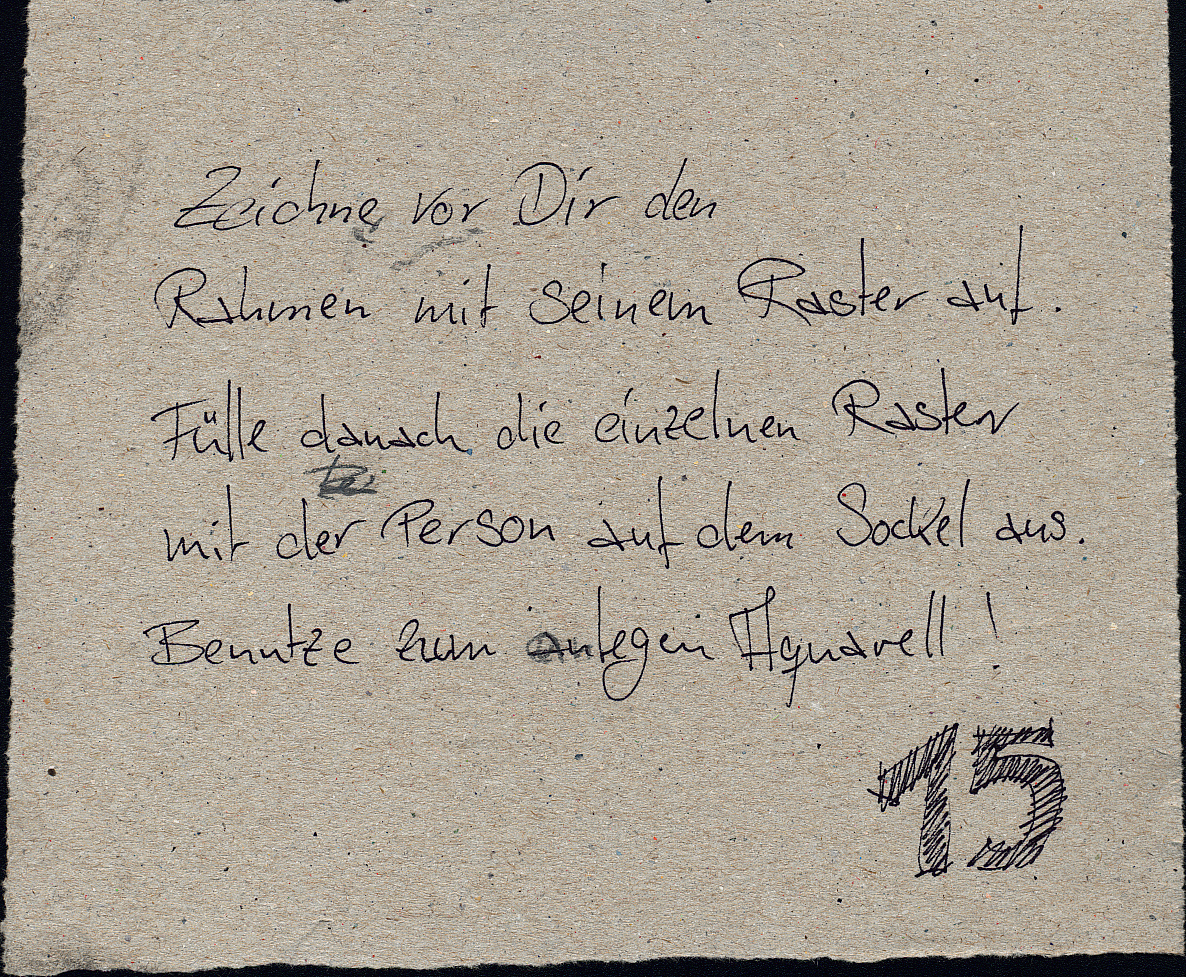 Zeichne vor Dir den
Rahmen mit seinem Raster auf.
Fülle danach die einzelnen Raster
mit der Person auf dem Sockel aus.
Benutze zum anlegen Aquarell!
15